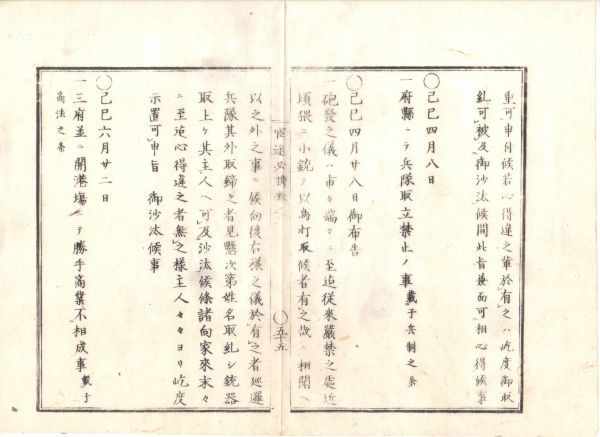 重可申付候若心得違之輩於有之ハ屹度御取
糺可被及御沙汰候間此旨兼而可相心得候事
〇己巳四月八日
一府縣ニテ兵隊取立禁止ノ事 載于兵制之条
〇己巳四月廿八日御布告
一砲發之儀ハ市々端々ニ至迄従来厳禁之處近
頃猥ニ小銃ヲ以鳥打取候者有之哉ニ相聞ヘ
官途必携
〇五十五
以之外之事ニ候向後右様之儀於有之者巡邏
兵隊其外取締之者見懸次第姓名取糺シ銃器
取上ケ其主人ヘ可及沙汰候條諸向家來末々
ニ至迄心得違之者無之様主人々々ヨリ屹度
示置可申旨 御沙汰候事
〇己巳六月廿二日
一三府並ニ開港場ニテ勝手商業不相成事 載于
商法之条